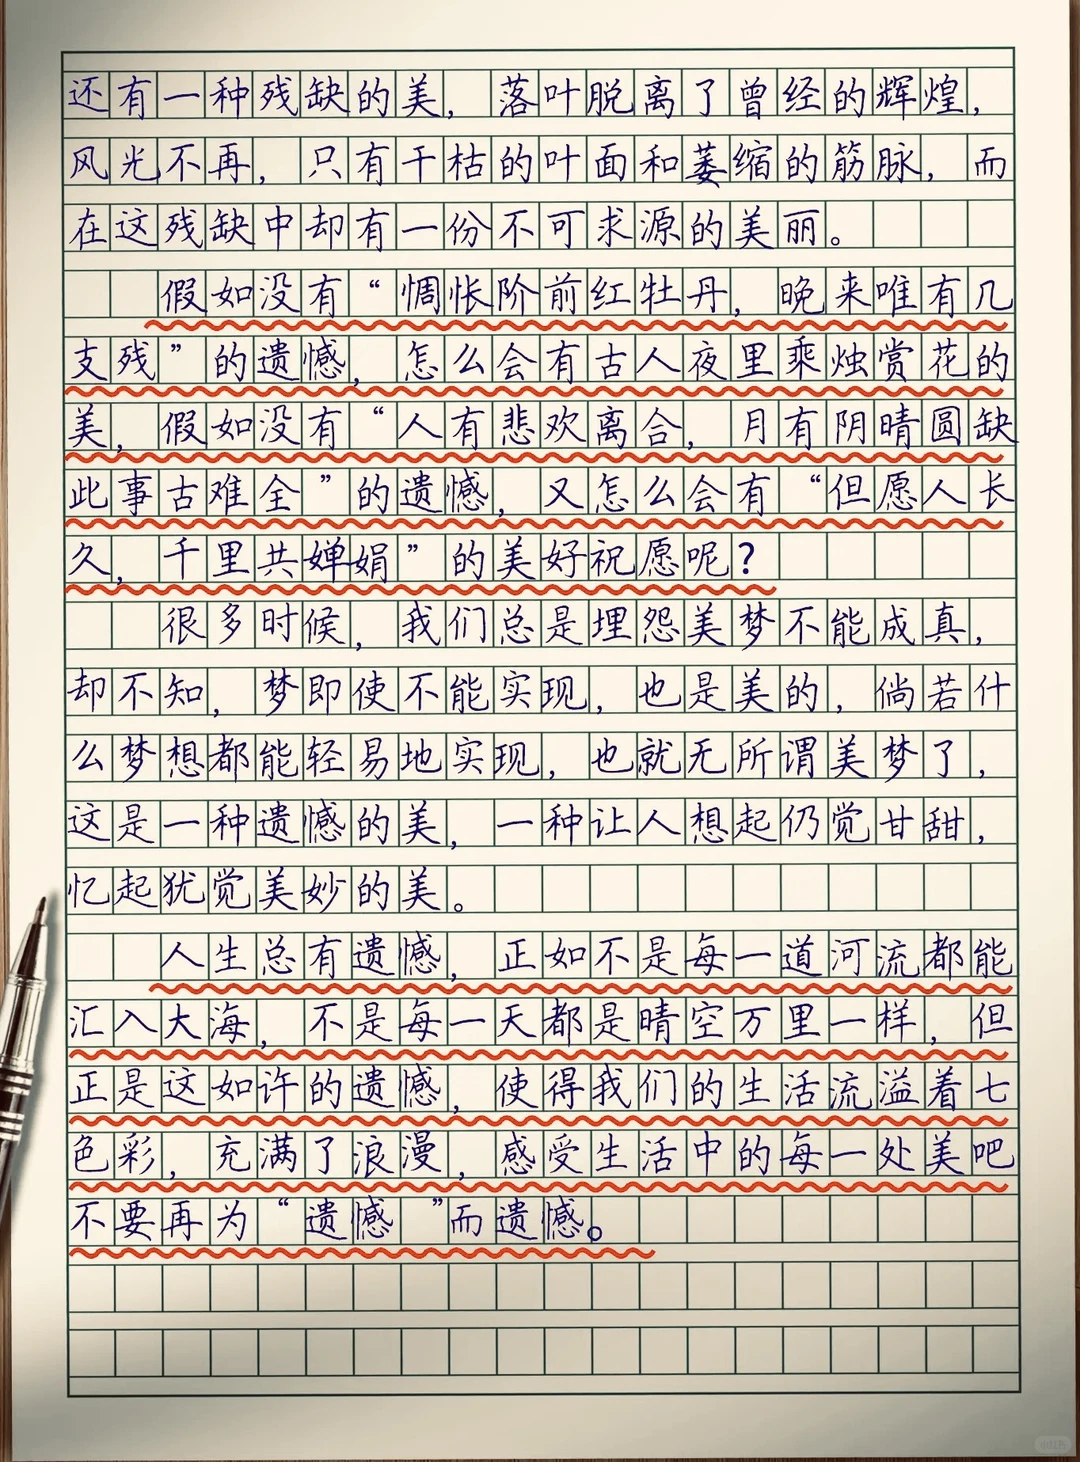 还有一种残缺的美，落叶脱离了曾经的辉煌，
风光不再，只有干枯的叶面和萎缩的筋脉，而
在这残缺中却有一份不可求源的美丽。
假如没有“惆怅阶前红牡丹，晚来唯有几
支残”的遗憾，怎么会有古人夜里乘烛赏花的
美，假如没有“人有悲欢离合，月有阴晴圆缺
此事古难全”的遗憾，又怎么会有“但愿人长
久，千里共婵娟”的美好祝愿呢？
很多时候，我们总是埋怨美梦不能成真，
却不知，梦即使不能实现，也是美的，倘若什
么梦想都能轻易地实现，也就无所谓美梦了，
这是一种遗憾的美，一种让人想起仍觉甘甜，
忆起犹觉美妙的美。
人生总有遗憾，正如不是每一道河流都能
汇入大海，不是每一天都是晴空万里一样，但
正是这如许的遗憾，使得我们的生活流溢着七
色彩，充满了浪漫，感受生活中的每一处美吧
不要再为“遗憾”而遗憾。
小红书